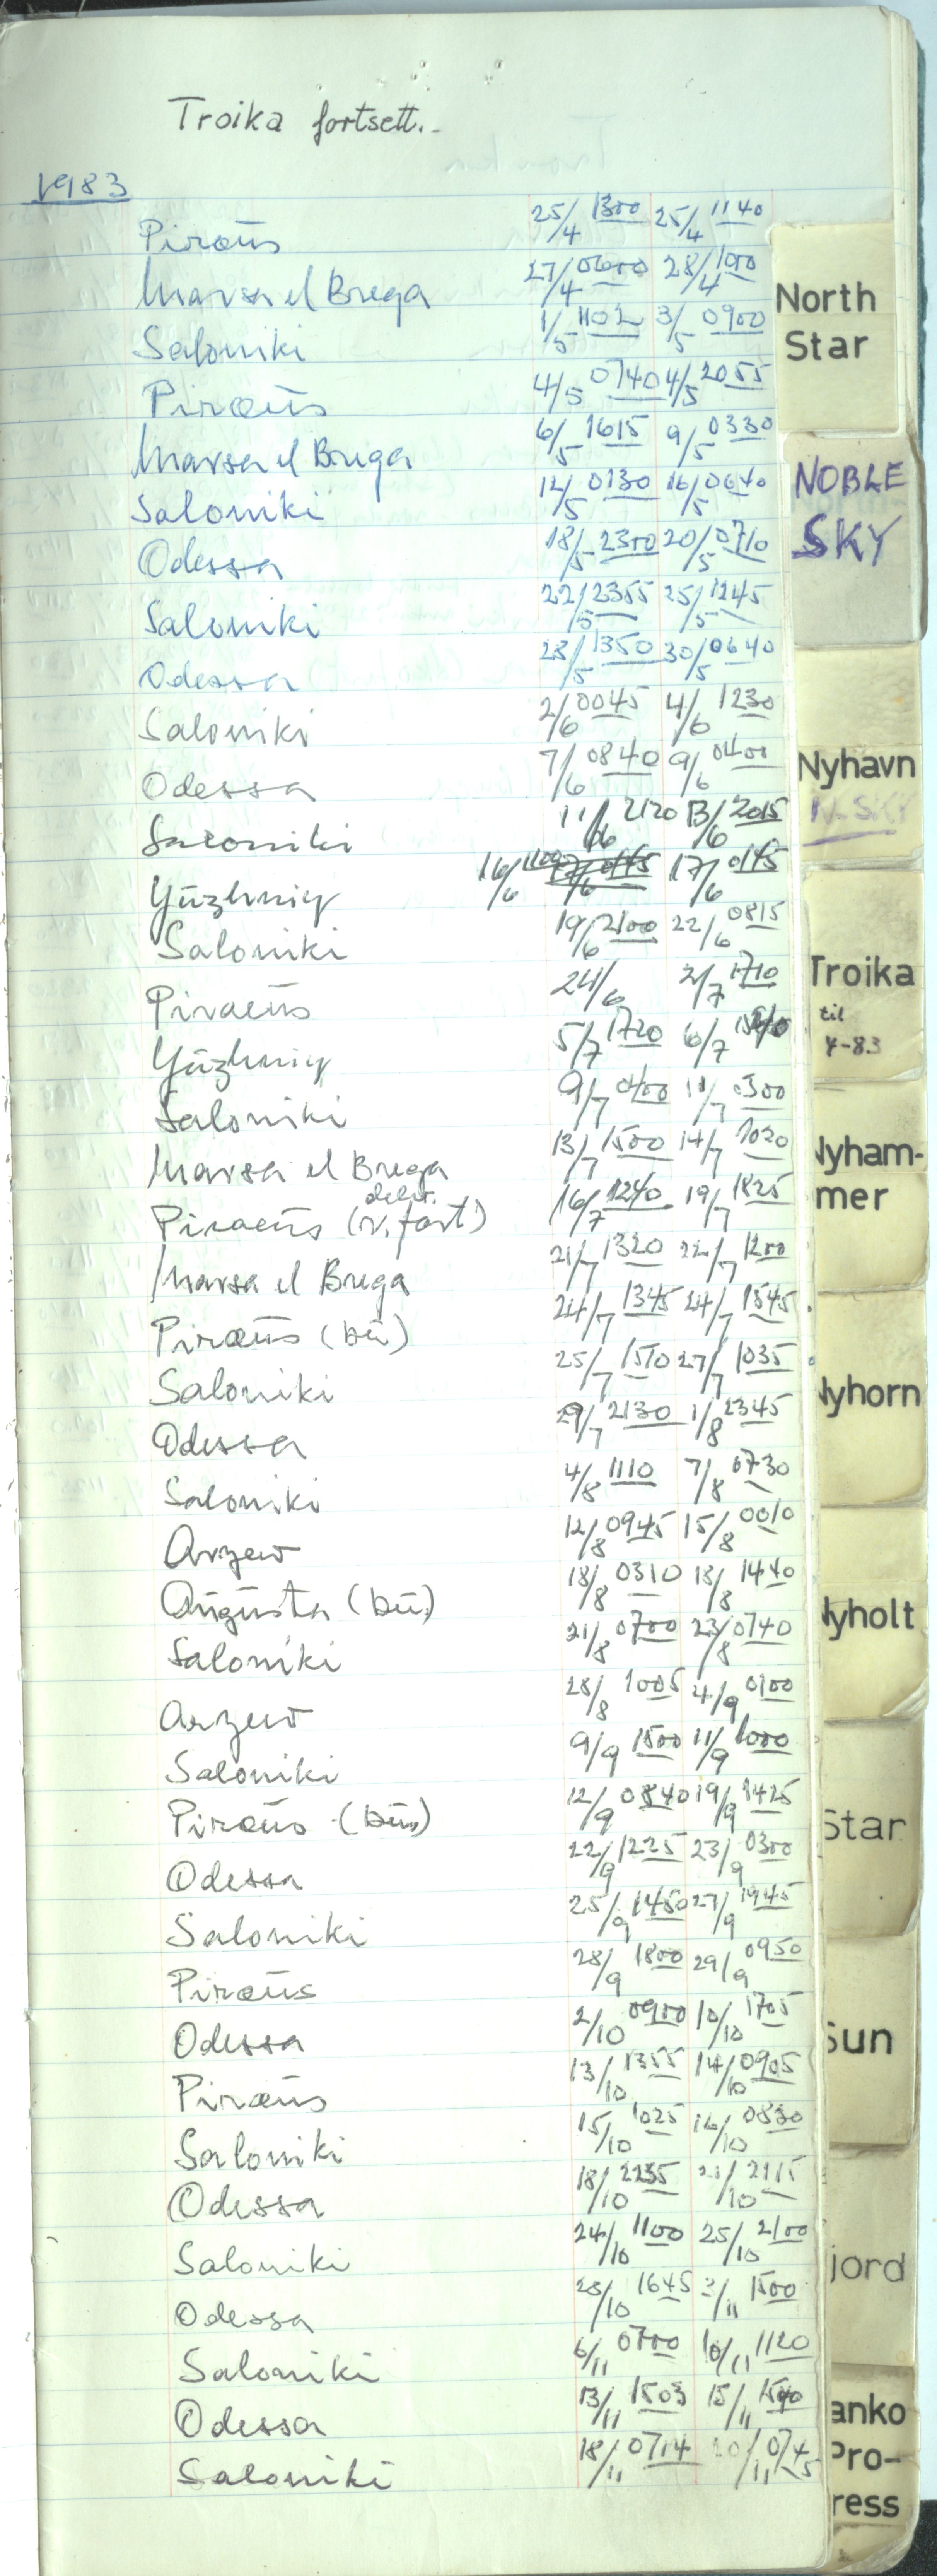 Troika fortsett.-
1983
Piræus 25/4 1300 25/4 1140
Marsa el Brega 27/4 0600 28/4 1000
Saloniki 1/5 1102 3/5 0900
Piræus 4/5 0740 4/5 2055
Marsa el Brega 6/5 1615 9/5 0330
Saloniki 12/5 0130 16/5 0640
Odessa 18/5 2300 20/5 0710
Saloniki 22/5 2355 25/5 1245
Odessa 28/5 1350 30/5 0640
Saloniki 2/6 0045 4/6 1230
Odessa 7/6 0840 9/6 0400
Saloniki 11/6 2120 13/6 2015
Yuzhniy 16/6 1120 17/6 0145 17/6 0145
Saloniki 19/6 2100 22/6 0815
Piraeus 24/6 2/7 1710
Yuzhniy 5/7 1720 6/7
Saloniki 9/7 0400 11/7 0300
Marsa el Brega 13/7 1500 14/7 1020
Piraeus (v. fart) 16/7 1240 19/7 1825
Marsa el Brega 21/7 1320 22/7 1200
Piræus (bu) 24/7 1345 24/7 1545
Saloniki 25/7 1510 27/7 1035
Odessa 29/7 2130 1/8 2345
Saloniki 4/8 1110 7/8 0730
Arzew 12/8 0945 15/8 0010
Augusta (bu.) 18/8 0310 18/8 1440
Saloniki 21/8 0700 23/8 0740
Arzew 28/8 1005 4/9 0100
Saloniki 9/9 1500 11/9 1000
Piræus (bu.) 12/9 0840 19/9 1425
Odessa 22/9 1225 23/9 0300
Saloniki 25/9 1450 27/9 1945
Piræus 28/9 1800 29/9 0950
Odessa 2/10 0900 10/10 1705
Piræus 13/10 1355 14/10 0905
Saloniki 15/10 1025 16/10 0830
Odessa 18/10 2235 21/10 2115
Saloniki 24/10 1100 25/10 2100
Odessa 28/10 1645 3/11 1500
Saloniki 6/11 0700 10/11 1120
Odessa 13/11 1503 15/11 1540
Saloniki 18/11 0714 20/11 0745
North
Star
NOBLE
SKY
Nyhavn
N. SKY
Troika
til
4-83
Nyham-
mer
Nyhorn
Nyholt
Star
Sun
jord
anko
Pro-
ress